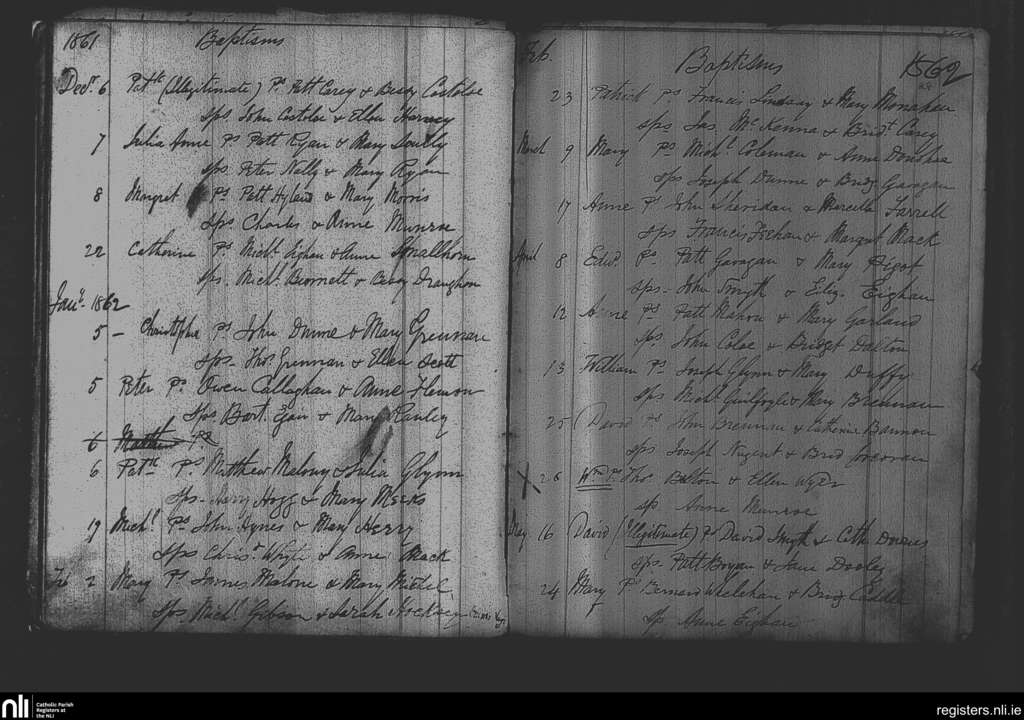 1861 Baptisms
Decr. 6 Patk (Illegitimate) Ps. Patt Carey & Bessy Costoloe
Sps. John Costoloe & Ellen Harvey
7 Julia Anne Ps Patt Ryan & Mary Scully
Sps. Peter Nally & Mary Ryan
8 Margret Ps. Patt Hyland & Mary Morris
Sps Charles & Anne Munroe
22 Catherine Ps. Michl. Eighan & Anne Smallhorn
Sps. Michl. & Bessy Draughon
Jany. 1862
5 - Christopher Ps John Dunne & Mary Grennan
Sps. Thos. Grennan & Ellen Scott
5 Peter Ps. Owen Callaghan & Anne
Sps Bart. Egan & Mary Ranley
6 Matthew Ps
6 Patk Ps Matthew Malony & Julia Glynn
Sps. Harry Hogg & Mary Meeks
19 Michl. Ps John Hynes & Mary
Sps Christr Whyte & Anne Mack
Feb 2 Mary Ps James Malone & Mary
Sps. Michl. Gibson & Sarah
Feb. Baptisms 1862
23 Patrick Ps Francis Lindsay & Mary Monahan
Sps. Jas. McKenna & Bridt. Casey
March 9 Mary Ps. Michl. Coleman & Anne Donohoe
Sps Joseph Dunne & Bridg Gavagan
17 Anne Ps John Sheridan & Marcella Farrell
Sps Francis Feehan & Margret Mack
April 8 Edwd. Ps. Patt Gavagan & Mary Pigot
Sps. John Smyth & Eliz. Eighan
12 Anne Ps Patt Mahon & Mary Garland
Sps John Coloe & Bridget Dalton
13 William Ps. Joseph Glynn & Mary Duffy
Sps Michl. Guilfoyle & Mary Brennan
25 David Ps John Brennan & Catherine Bannon
Sps Joseph Nugent & Brid Brennan
X 26 Wm Ps. Thos. Belton & Ellen Wyer
Sp Anne Munroe
May 16 David (Illegitimate) Ps David Smyth & Cath
Sps. Patt Bryan & Jane Dooley
24 Mary Ps Bernard Whelehan & Bridg
Sp Anne Eighan
nli Catholic Parish
Registers at
the NLI
registers.nli.ie